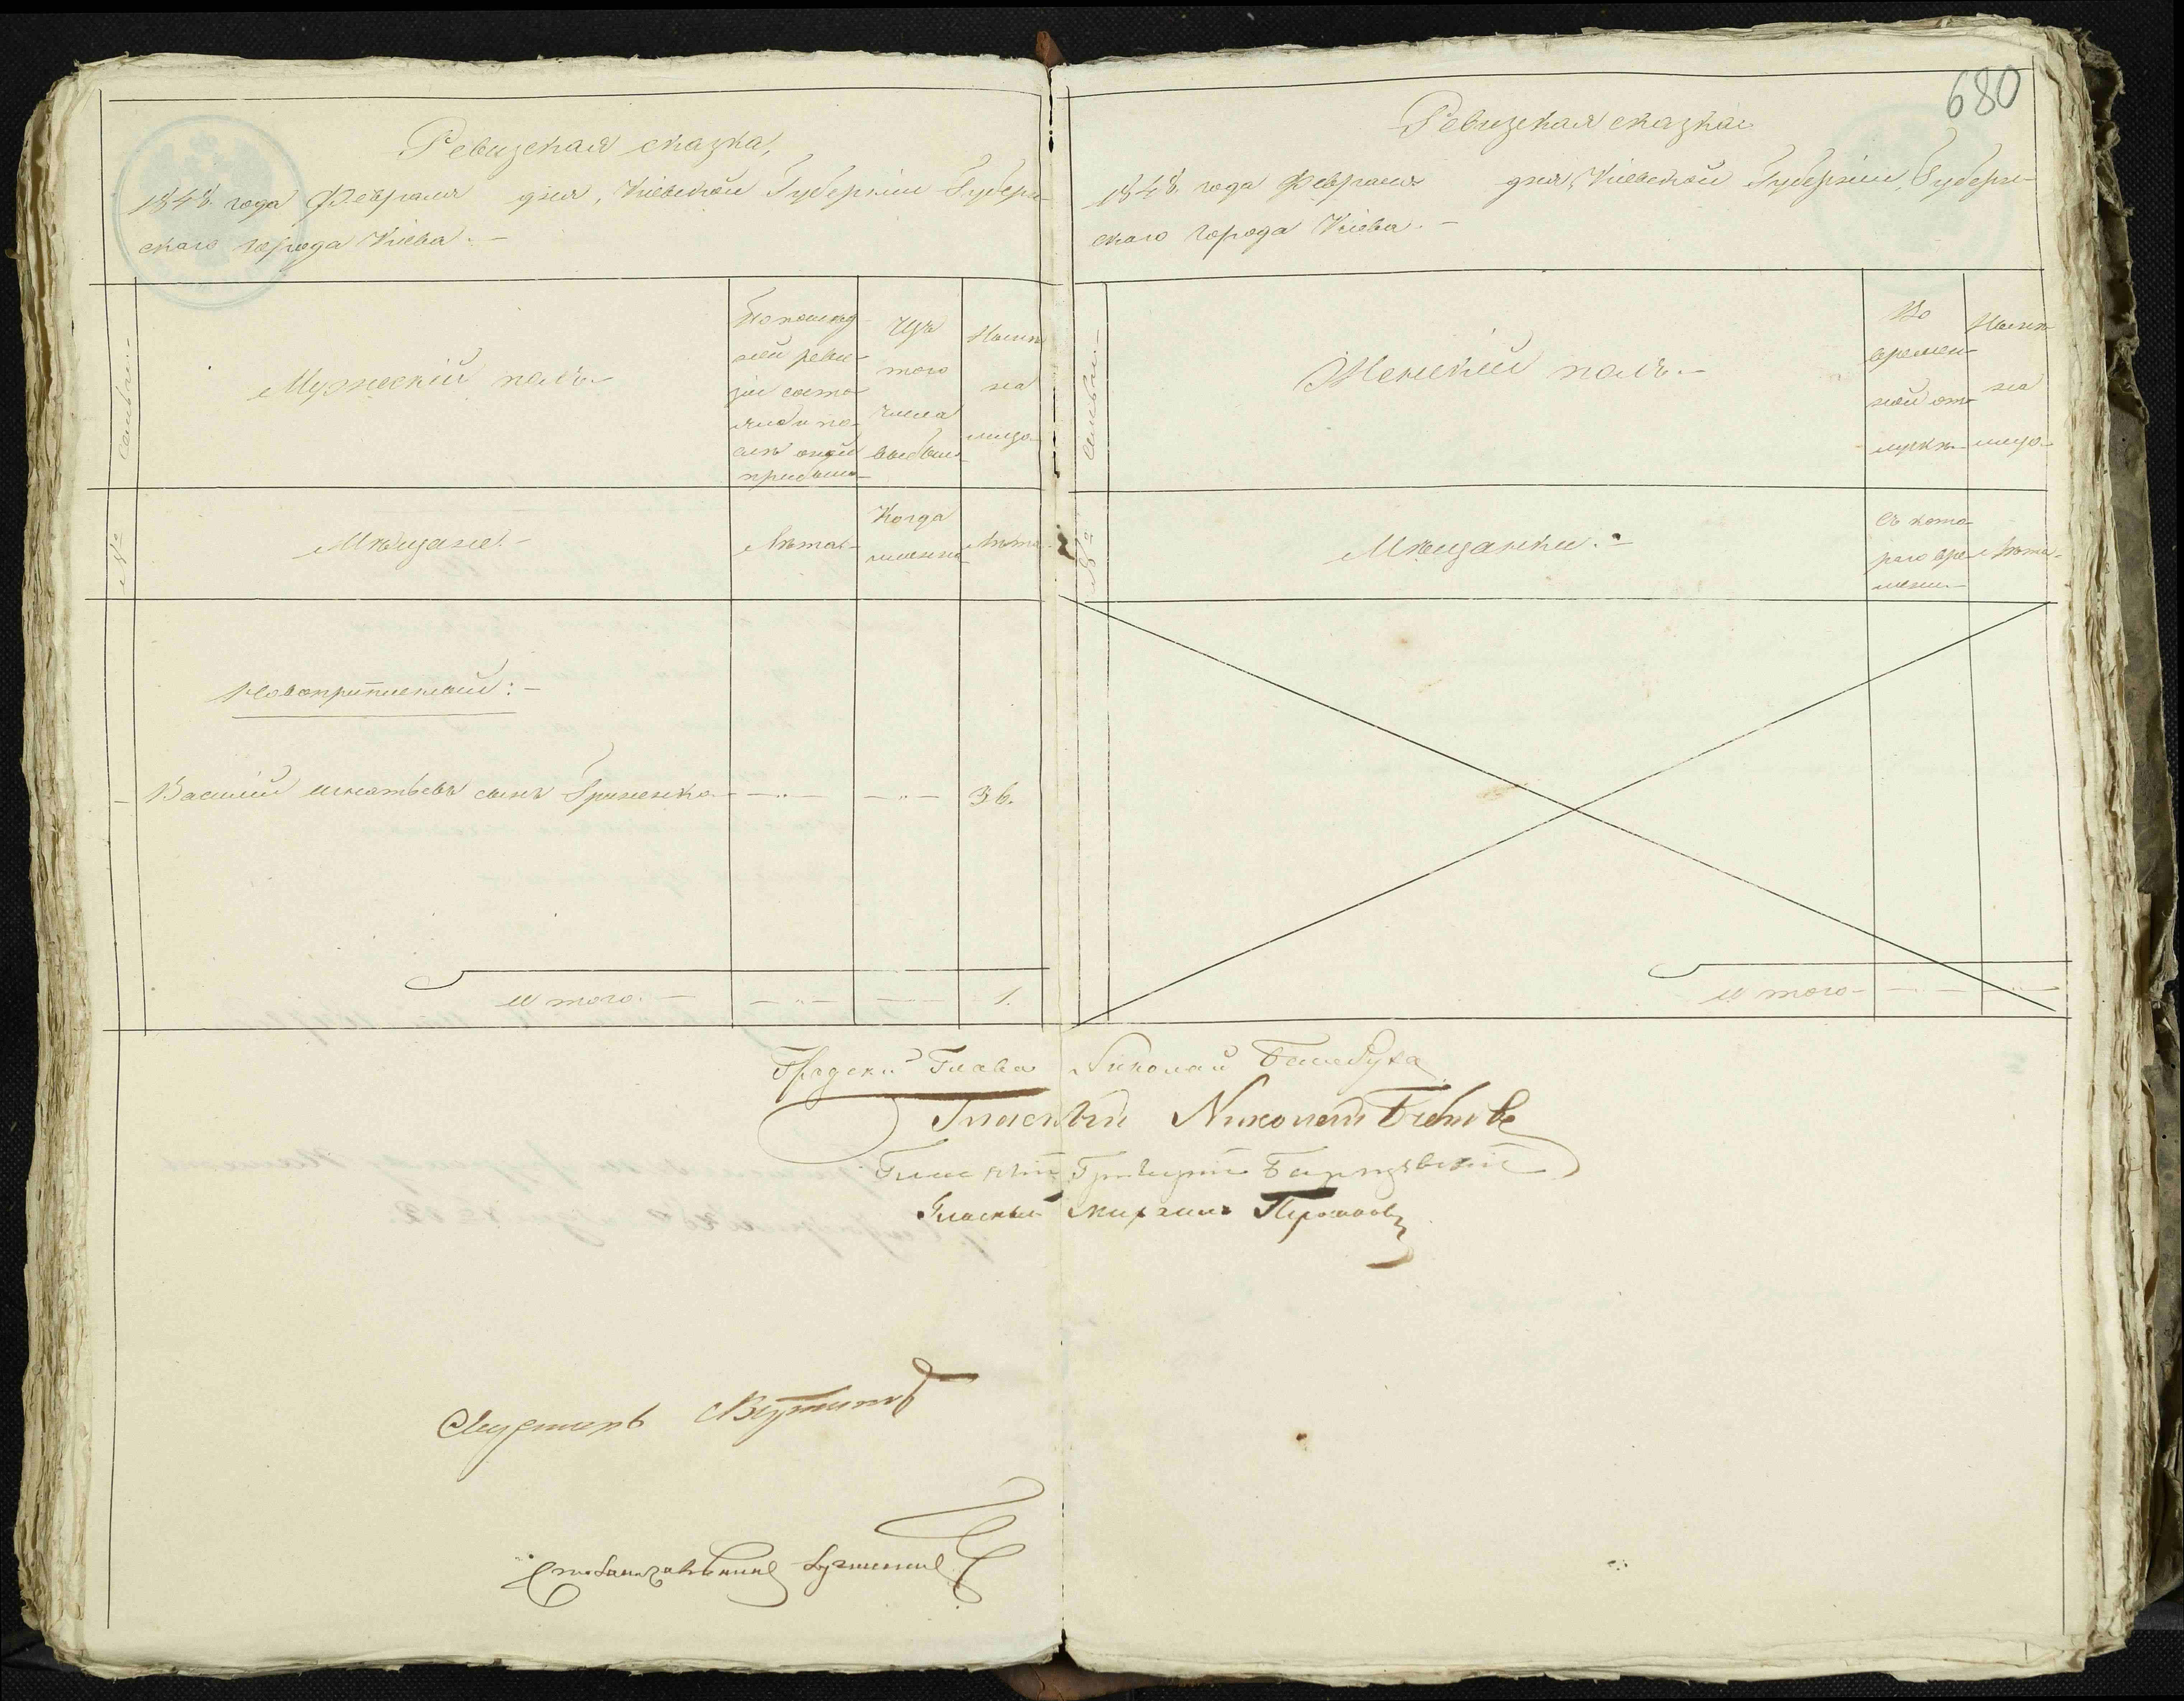 Ревизская сказка,
1848 года Февраля дня, Кіевской Губерніи Губерн-
скаго города Кіева. -
№ семьи. -
Мужескій полъ. -
По послед-
ней реви-
зіи состо-
яло и по-
слѣ оной
прибыло -
Изъ
того
числа
выбыло -
Нынѣ
на
лицо -
Мѣщане. -
Лѣта. -
Когда
именно -
Лѣта. -
Новоприписной: -
Василій Игнатьевъ сынъ Гриненко - - „ - - „ - 36.
И того. - - „ - - 1.
680
Ревизская сказка
1848 года Февраля дня, Кіевской Губерніи, Губерн-
скаго города Кіева. -
№ семьи. -
Женскій полъ. -
Во
времен-
ной от-
лучкѣ -
Нынѣ
на
лицо -
Мѣщанки. -
Съ кото-
раго вре-
мени -
Лѣта. -
И того -
Градскій Глава Николай Балабуха
Гласный Николай
Гласный Григорій
Гласный
Столоначальникъ